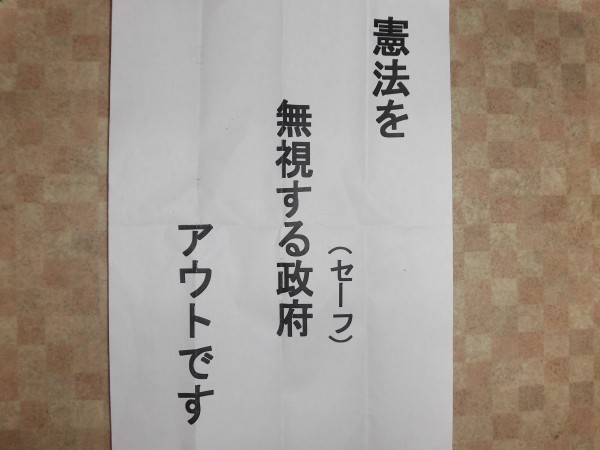 憲法を
無視する政府
（セーフ）
アウトです